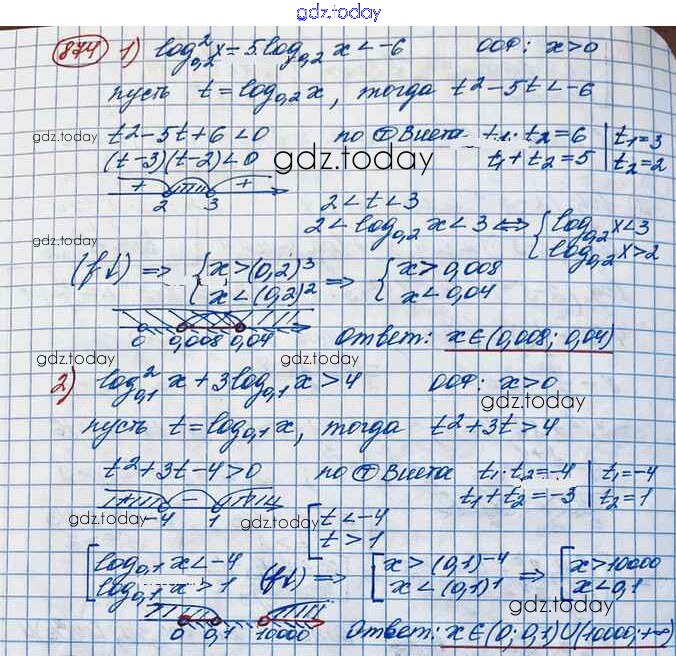 gdz.today
874 1) log²₀,₂ x - 5 log₀,₂ x < -6 ООФ: x > 0
gdz.today
пусть t = log₀,₂ x, тогда t² - 5t < -6
gdz.today
t² - 5t + 6 < 0 по Ⓣ Виета t₁ · t₂ = 6 | t₁ = 3
(t - 3)(t - 2) < 0 gdz.today t₁ + t₂ = 5 | t₂ = 2
+ +
2 3 2 < t < 3
gdz.today
2 < log₀,₂ x < 3 ⟺ { log₀,₂ x < 3
log₀,₂ x > 2
gdz.today
(f↓) ⟹ { x > (0,2)³ ⟹ { x > 0,008
x < (0,2)² x < 0,04
0 0,008 0,04 Ответ: x ∈ (0,008; 0,04)
gdz.today gdz.today
2) log²₀,₁ x + 3 log₀,₁ x > 4 ООФ: x > 0
gdz.today
пусть t = log₀,₁ x, тогда t² + 3t > 4
t² + 3t - 4 > 0 по Ⓣ Виета t₁ · t₂ = -4 | t₁ = -4
t₁ + t₂ = -3 | t₂ = 1
+ - +
-4 1 [ t < -4
t > 1
gdz.today gdz.today
[ log₀,₁ x < -4 (f↓) ⟹ [ x > (0,1)⁻⁴ ⟹ [ x > 10000
log₀,₁ x > 1 x < (0,1)¹ x < 0,1
gdz.today
0 0,1 10000 Ответ: x ∈ (0; 0,1) ∪ (10000; +∞)
gdz.today gdz.today